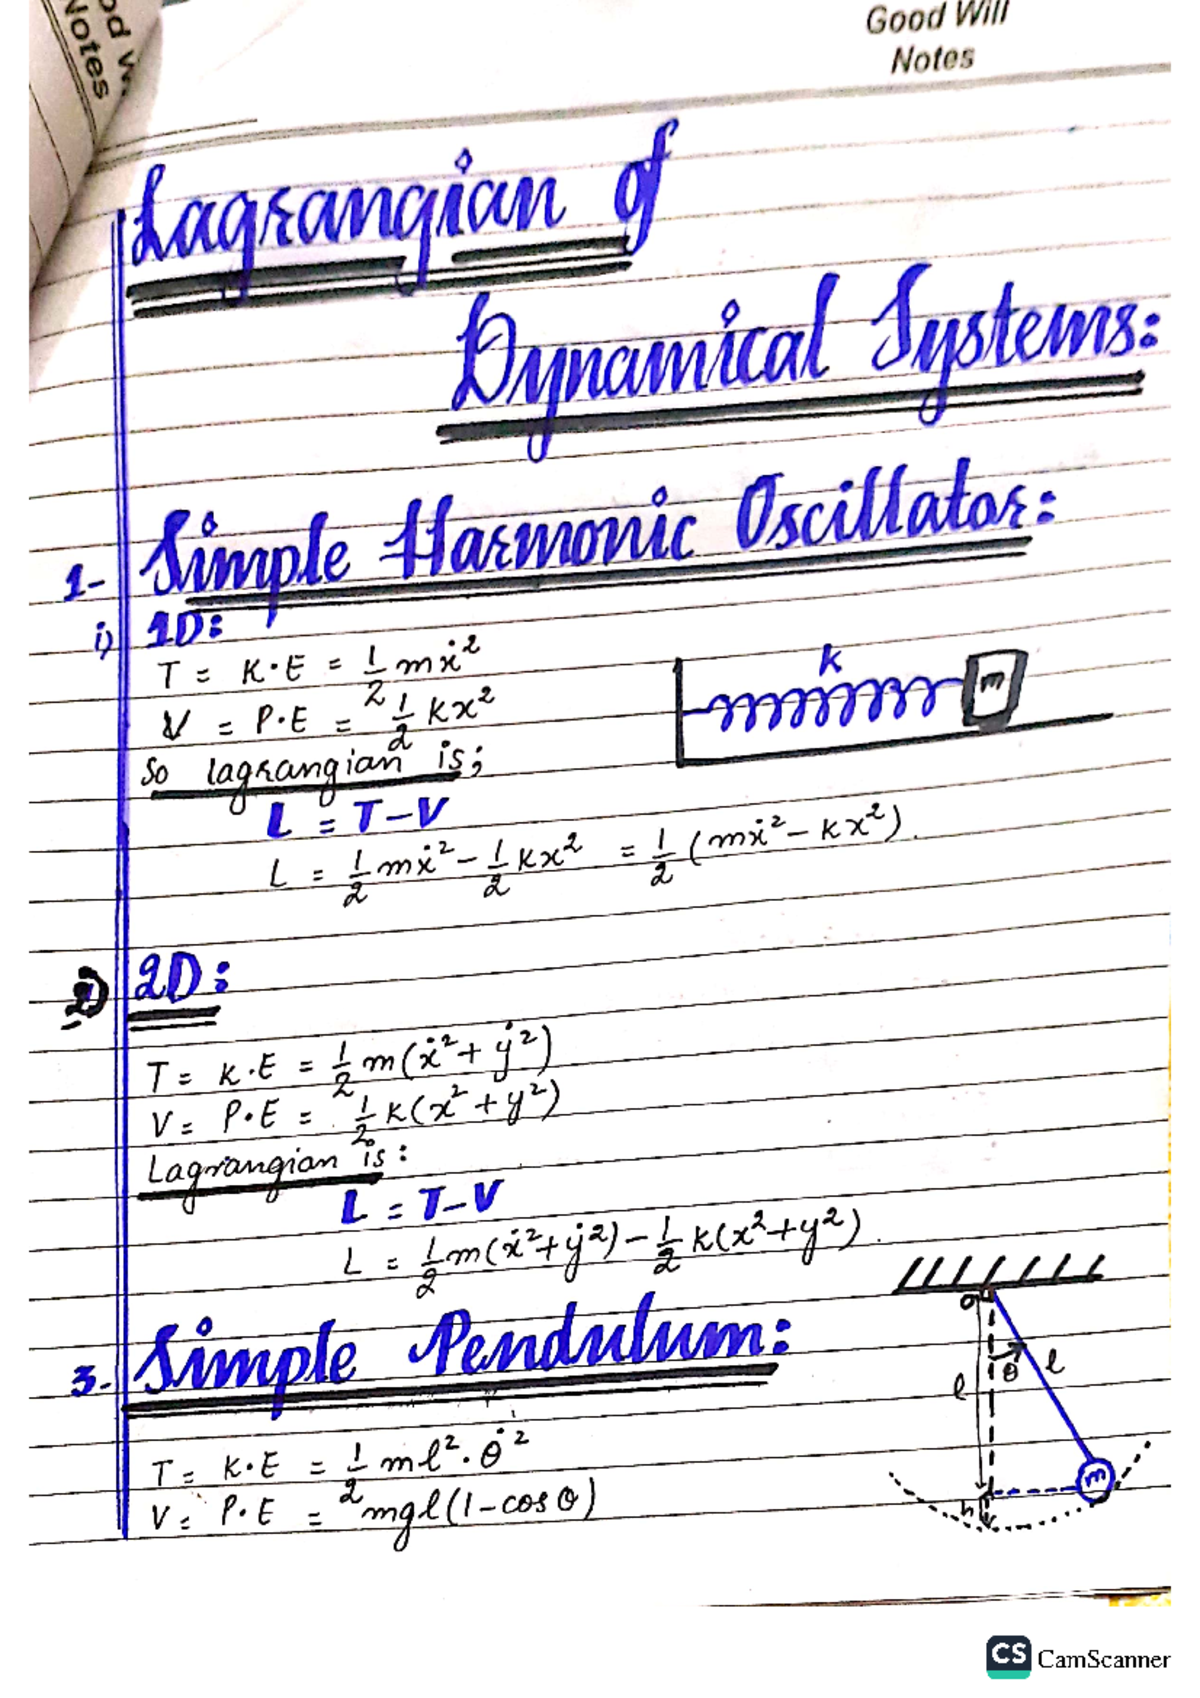 od W.
Notes
Good Will
Notes
Lagrangian of
Dynamical Systems:
1- Simple Harmonic Oscillator:
i) 1D:
T = K.E = 1/2 mẋ²
V = P.E = 1/2 kx²
So lagrangian is;
L = T-V
L = 1/2 mẋ² - 1/2 kx² = 1/2 (mẋ² - kx²).
k
m
2) 2D:
T = K.E = 1/2 m(ẋ² + ẏ²)
V = P.E = 1/2 k(x² + y²)
Lagrangian is:
L = T-V
L = 1/2 m(ẋ² + ẏ²) - 1/2 k(x² + y²).
3- Simple Pendulum:
T = K.E = 1/2 ml² . θ̇²
V = P.E = mgl(1-cosθ)
o
θ
l
l
m
h
CS CamScanner